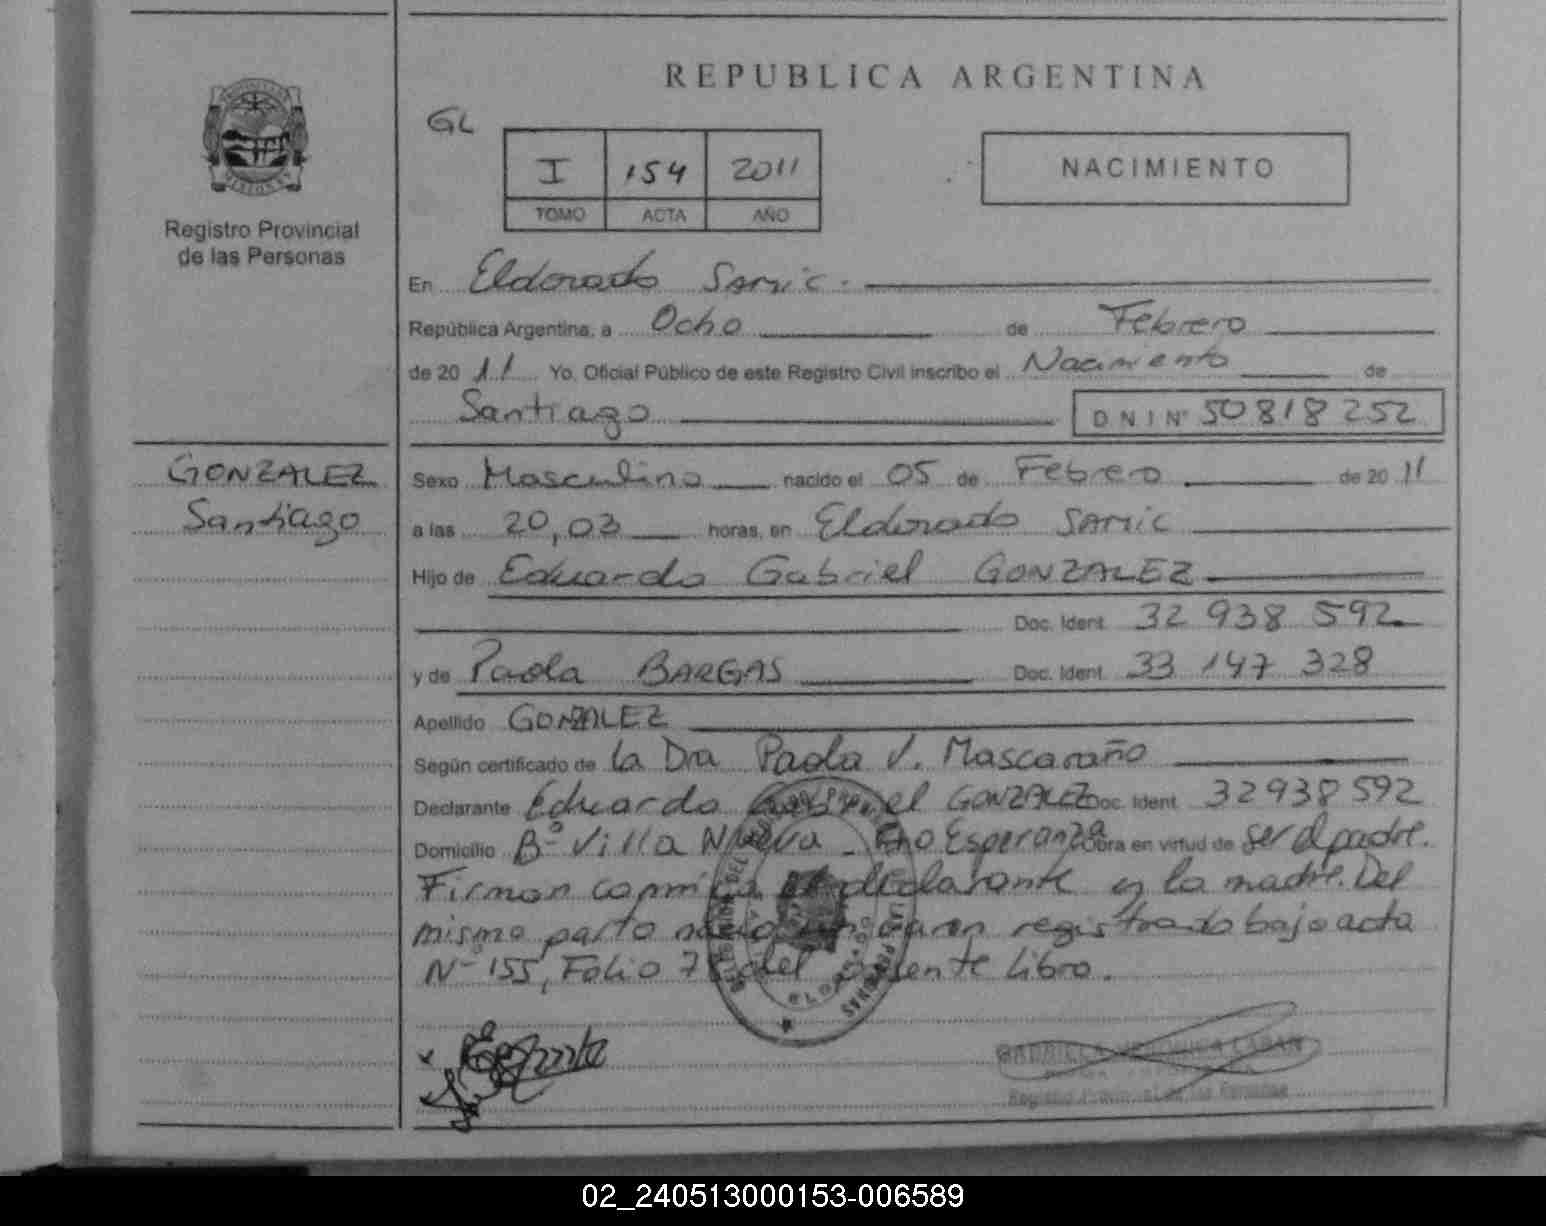 REPUBLICA ARGENTINA
GL
I 154 2011
TOMO ACTA AÑO
NACIMIENTO
Registro Provincial
de las Personas
En Eldorado Samic.
República Argentina, a Ocho de Febrero
de 2011 Yo, Oficial Público de este Registro Civil inscribo el Nacimiento de
Santiago D N I Nº 50818252
GONZALEZ
Santiago
Sexo Masculino nacido el 05 de Febrero de 2011
a las 20,03 horas, en Eldorado SAMIC
Hijo de Eduardo Gabriel GONZALEZ
Doc. Ident. 32 938 592
y de Paola BARGAS Doc. Ident. 33 147 328
Apellido GONZALEZ
Según certificado de la Dra Paola V. Mascaraño
Declarante Eduardo Gabriel GONZALEZ Doc. Ident. 32938592
Domicilio Bº Villa Nueva - Pto Esperanza Obra en virtud de ser el padre.
Firman conmigo el declarante y la madre. Del
mismo parto nació un varon registrado bajo acta
Nº 155, Folio 78 del presente libro.
Registro Provincial de las Personas
02_240513000153-006589